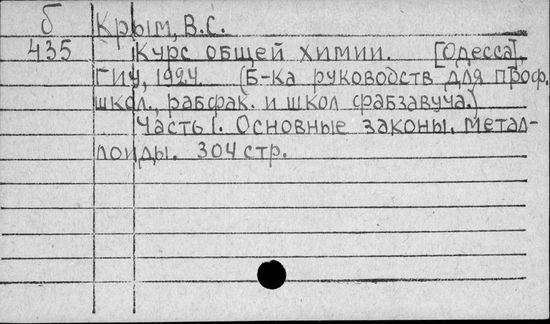 б Крым, В.С.
435 Курс общей химии. [Одесса],
ГИУ, 1924. (Б-ка руководств для проф.
школ., рабфак. и школ фабзавуча.)
Часть I. Основные законы. Метал-
лоиды. 304 стр.